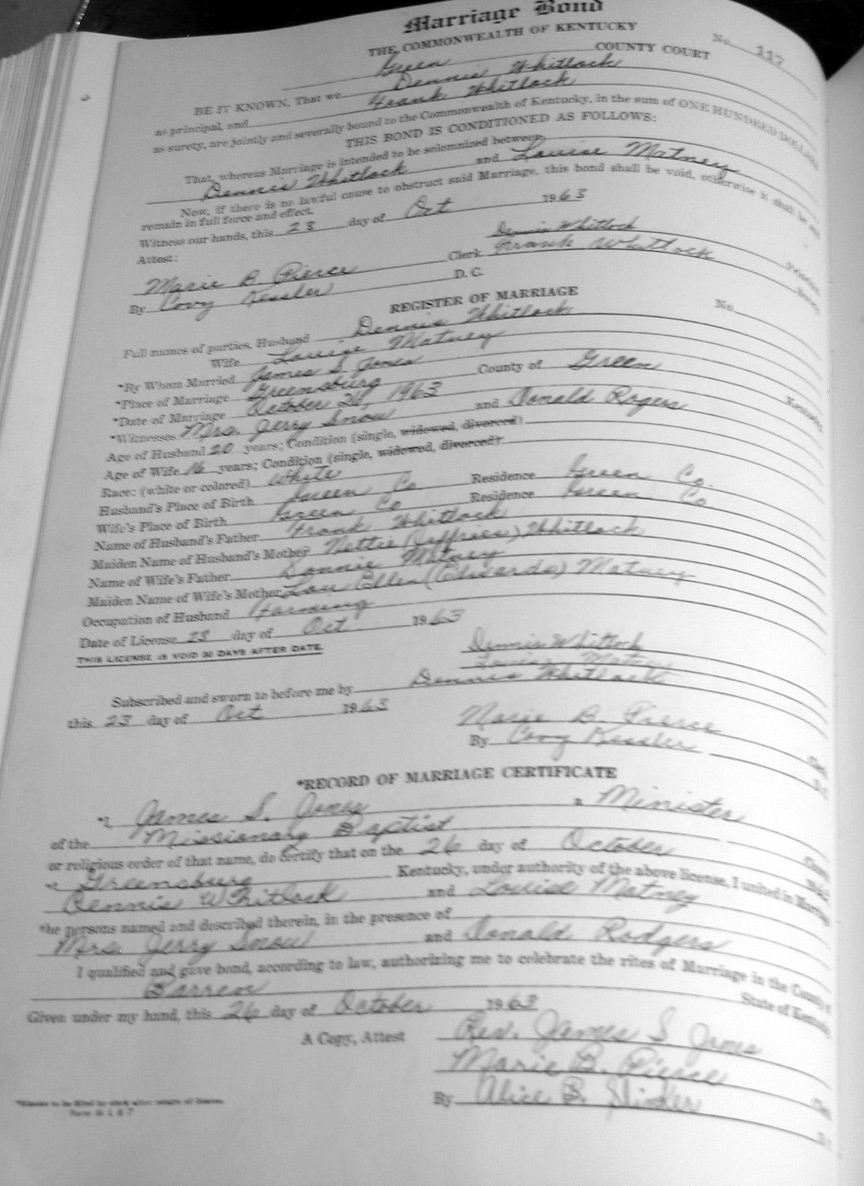 Marriage Bond
No. 117
THE COMMONWEALTH OF KENTUCKY
Green COUNTY COURT
BE IT KNOWN, That we Dennis Whitlock
as principal, and Frank Whitlock
as surety, are jointly and severally bound to the Commonwealth of Kentucky, in the sum of ONE HUNDRED DOLLARS
THIS BOND IS CONDITIONED AS FOLLOWS:
That, whereas Marriage is intended to be solemnized between
Dennis Whitlock and Louise Matney
Now, if there is no lawful cause to obstruct said Marriage, this bond shall be void, otherwise it shall be
remain in full force and effect.
Witness our hands, this 23 day of Oct 1963
Attest: Dennis Whitlock
Marie B. Pierce Clerk Frank Whitlock
By Covy Kessler D. C.
REGISTER OF MARRIAGE
No.
Full names of parties, Husband Dennis Whitlock
Wife Louise Matney
*By Whom Married James S. Jones
*Place of Marriage Greensburg County of Green Kentucky
*Date of Marriage October 26, 1963
*Witnesses Mrs. Jerry Snow and Donald Rogers
Age of Husband 20 years; Condition (single, widowed, divorced)
Age of Wife 16 years; Condition (single, widowed, divorced)
Race: (white or colored) White
Husband's Place of Birth Green Co Residence Green Co.
Wife's Place of Birth Green Co Residence Green Co
Name of Husband's Father Frank Whitlock
Maiden Name of Husband's Mother Nettie (Jeffries) Whitlock
Name of Wife's Father Lonnie Matney
Maiden Name of Wife's Mother Lou Ellen (Edwards) Matney
Occupation of Husband Farming
Date of License 23 day of Oct 1963
THIS LICENSE IS VOID 30 DAYS AFTER DATE.
Dennis Whitlock
Louise Matney
Subscribed and sworn to before me by Dennis Whitlock
this 23 day of Oct 1963
Marie B. Pierce
By Covy Kessler
*RECORD OF MARRIAGE CERTIFICATE
*I, James S. Jones a Minister
of the Missionary Baptist
or religious order of that name, do certify that on the 26 day of October
at Greensburg Kentucky, under authority of the above license, I united in Marriage
Dennis Whitlock and Louise Matney
the persons named and described therein, in the presence of
Mrs. Jerry Snow and Donald Rodgers
I qualified and gave bond, according to law, authorizing me to celebrate the rites of Marriage in the County of
Barren State of Kentucky
Given under my hand, this 26 day of October 1963
Rev. James S Jones
A Copy, Attest
Marie B. Pierce
By Alice B.